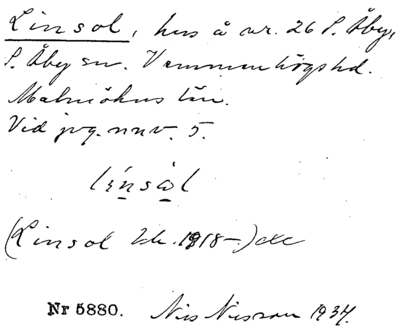 Linsol, hus å nr. 26 S. Åby,
S. Åby sn. Vemmenhögs hd.
Malmöhus län.
Vid jvg. nnv. 5.
(Linsol 1918-)
Nr 5880. Nils Nilsson 1934.